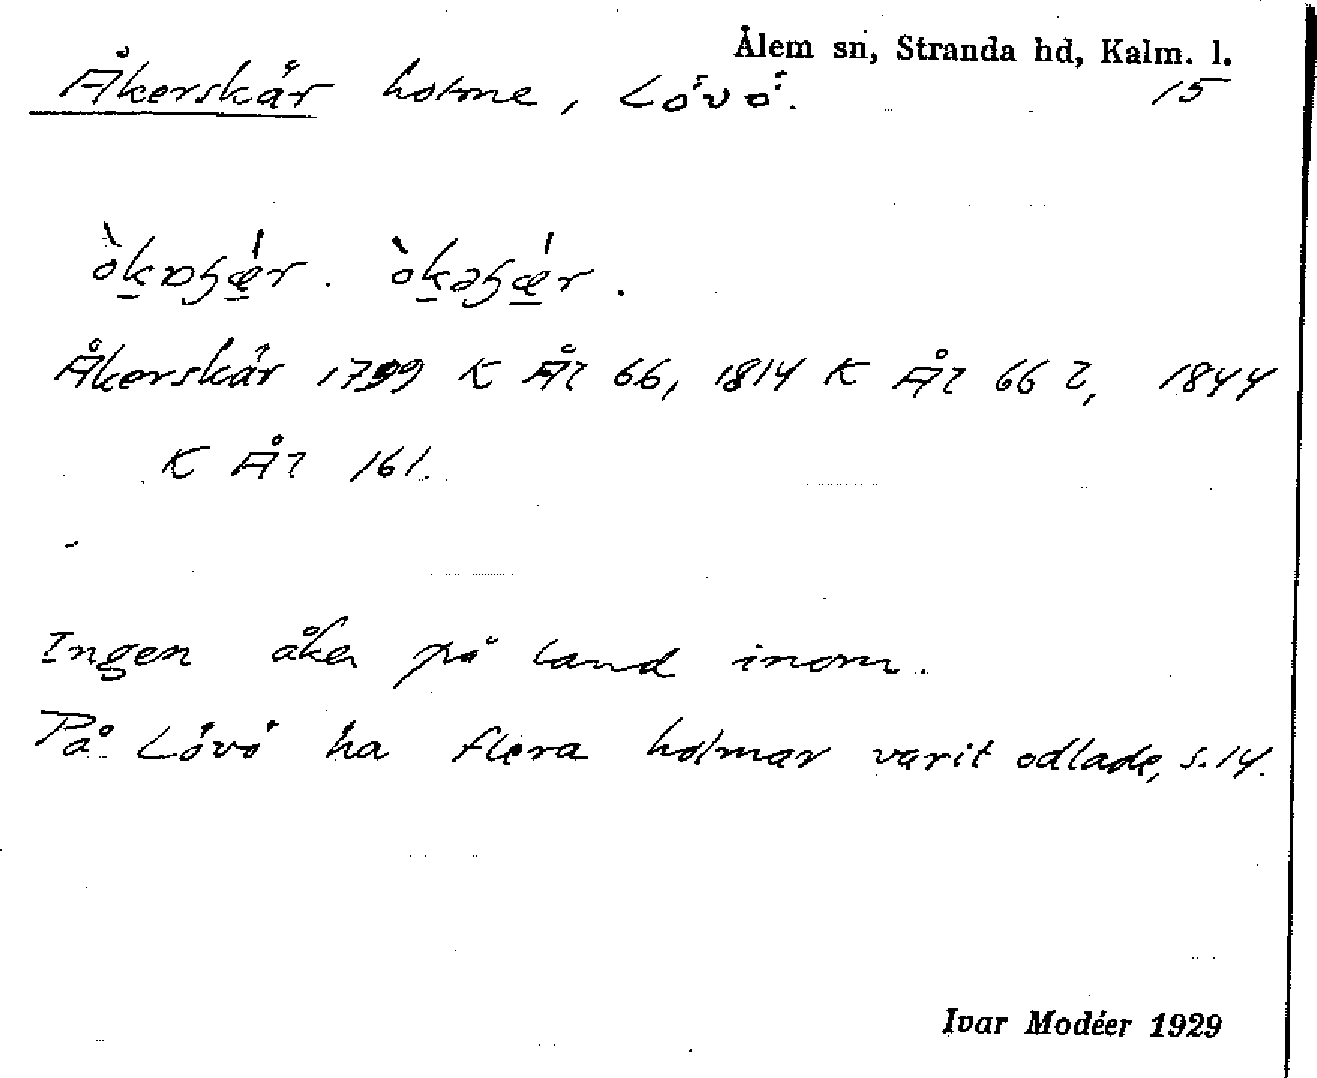 Ålem sn, Stranda hd, Kalm. l.
Åkerskär holme, Lövö. 15
Åkerskär 1799 K Ål 66, 1814 K Ål 66 2, 1844
K Ål 161.
Ingen åker på land inom.
På Lövö ha flera holmar varit odlade, s. 14.
Ivar Modéer 1929